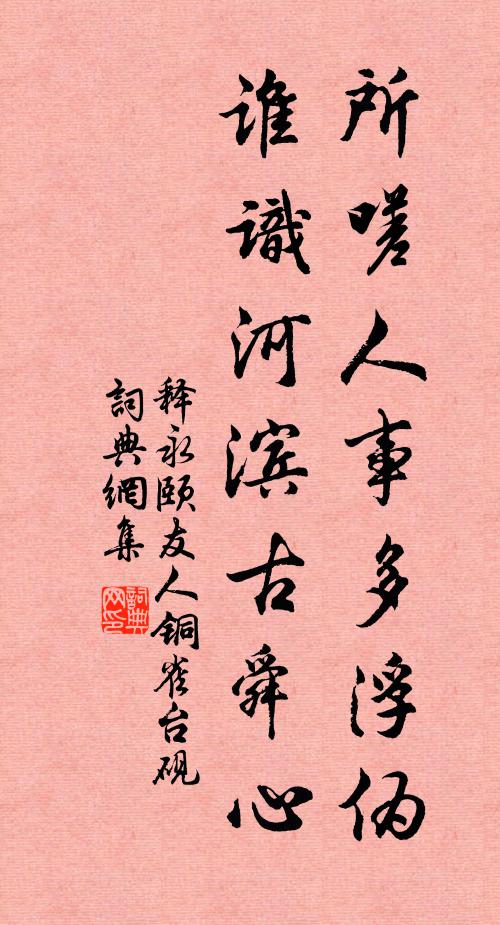 所嗟人事多浮伪
谁識河滨古舜心
释永颐友人铜雀台砚
詞典網集
詞典网印